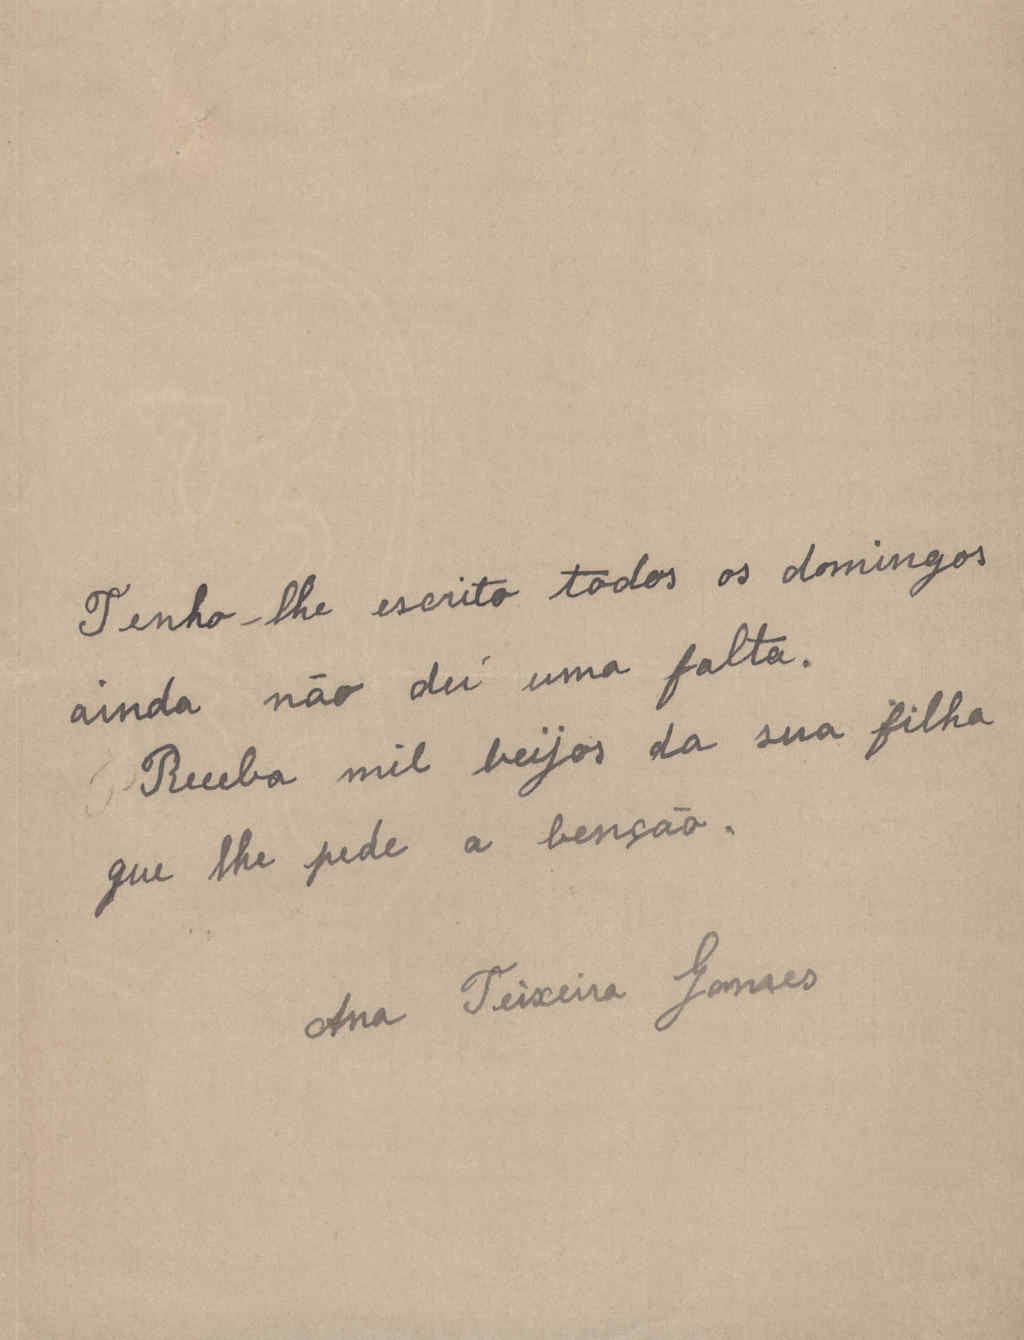 Tenho-lhe escrito todos os domingos
ainda não dei uma falta.
Receba mil beijos da sua filha
que lhe pede a benção.
Ana Teixeira